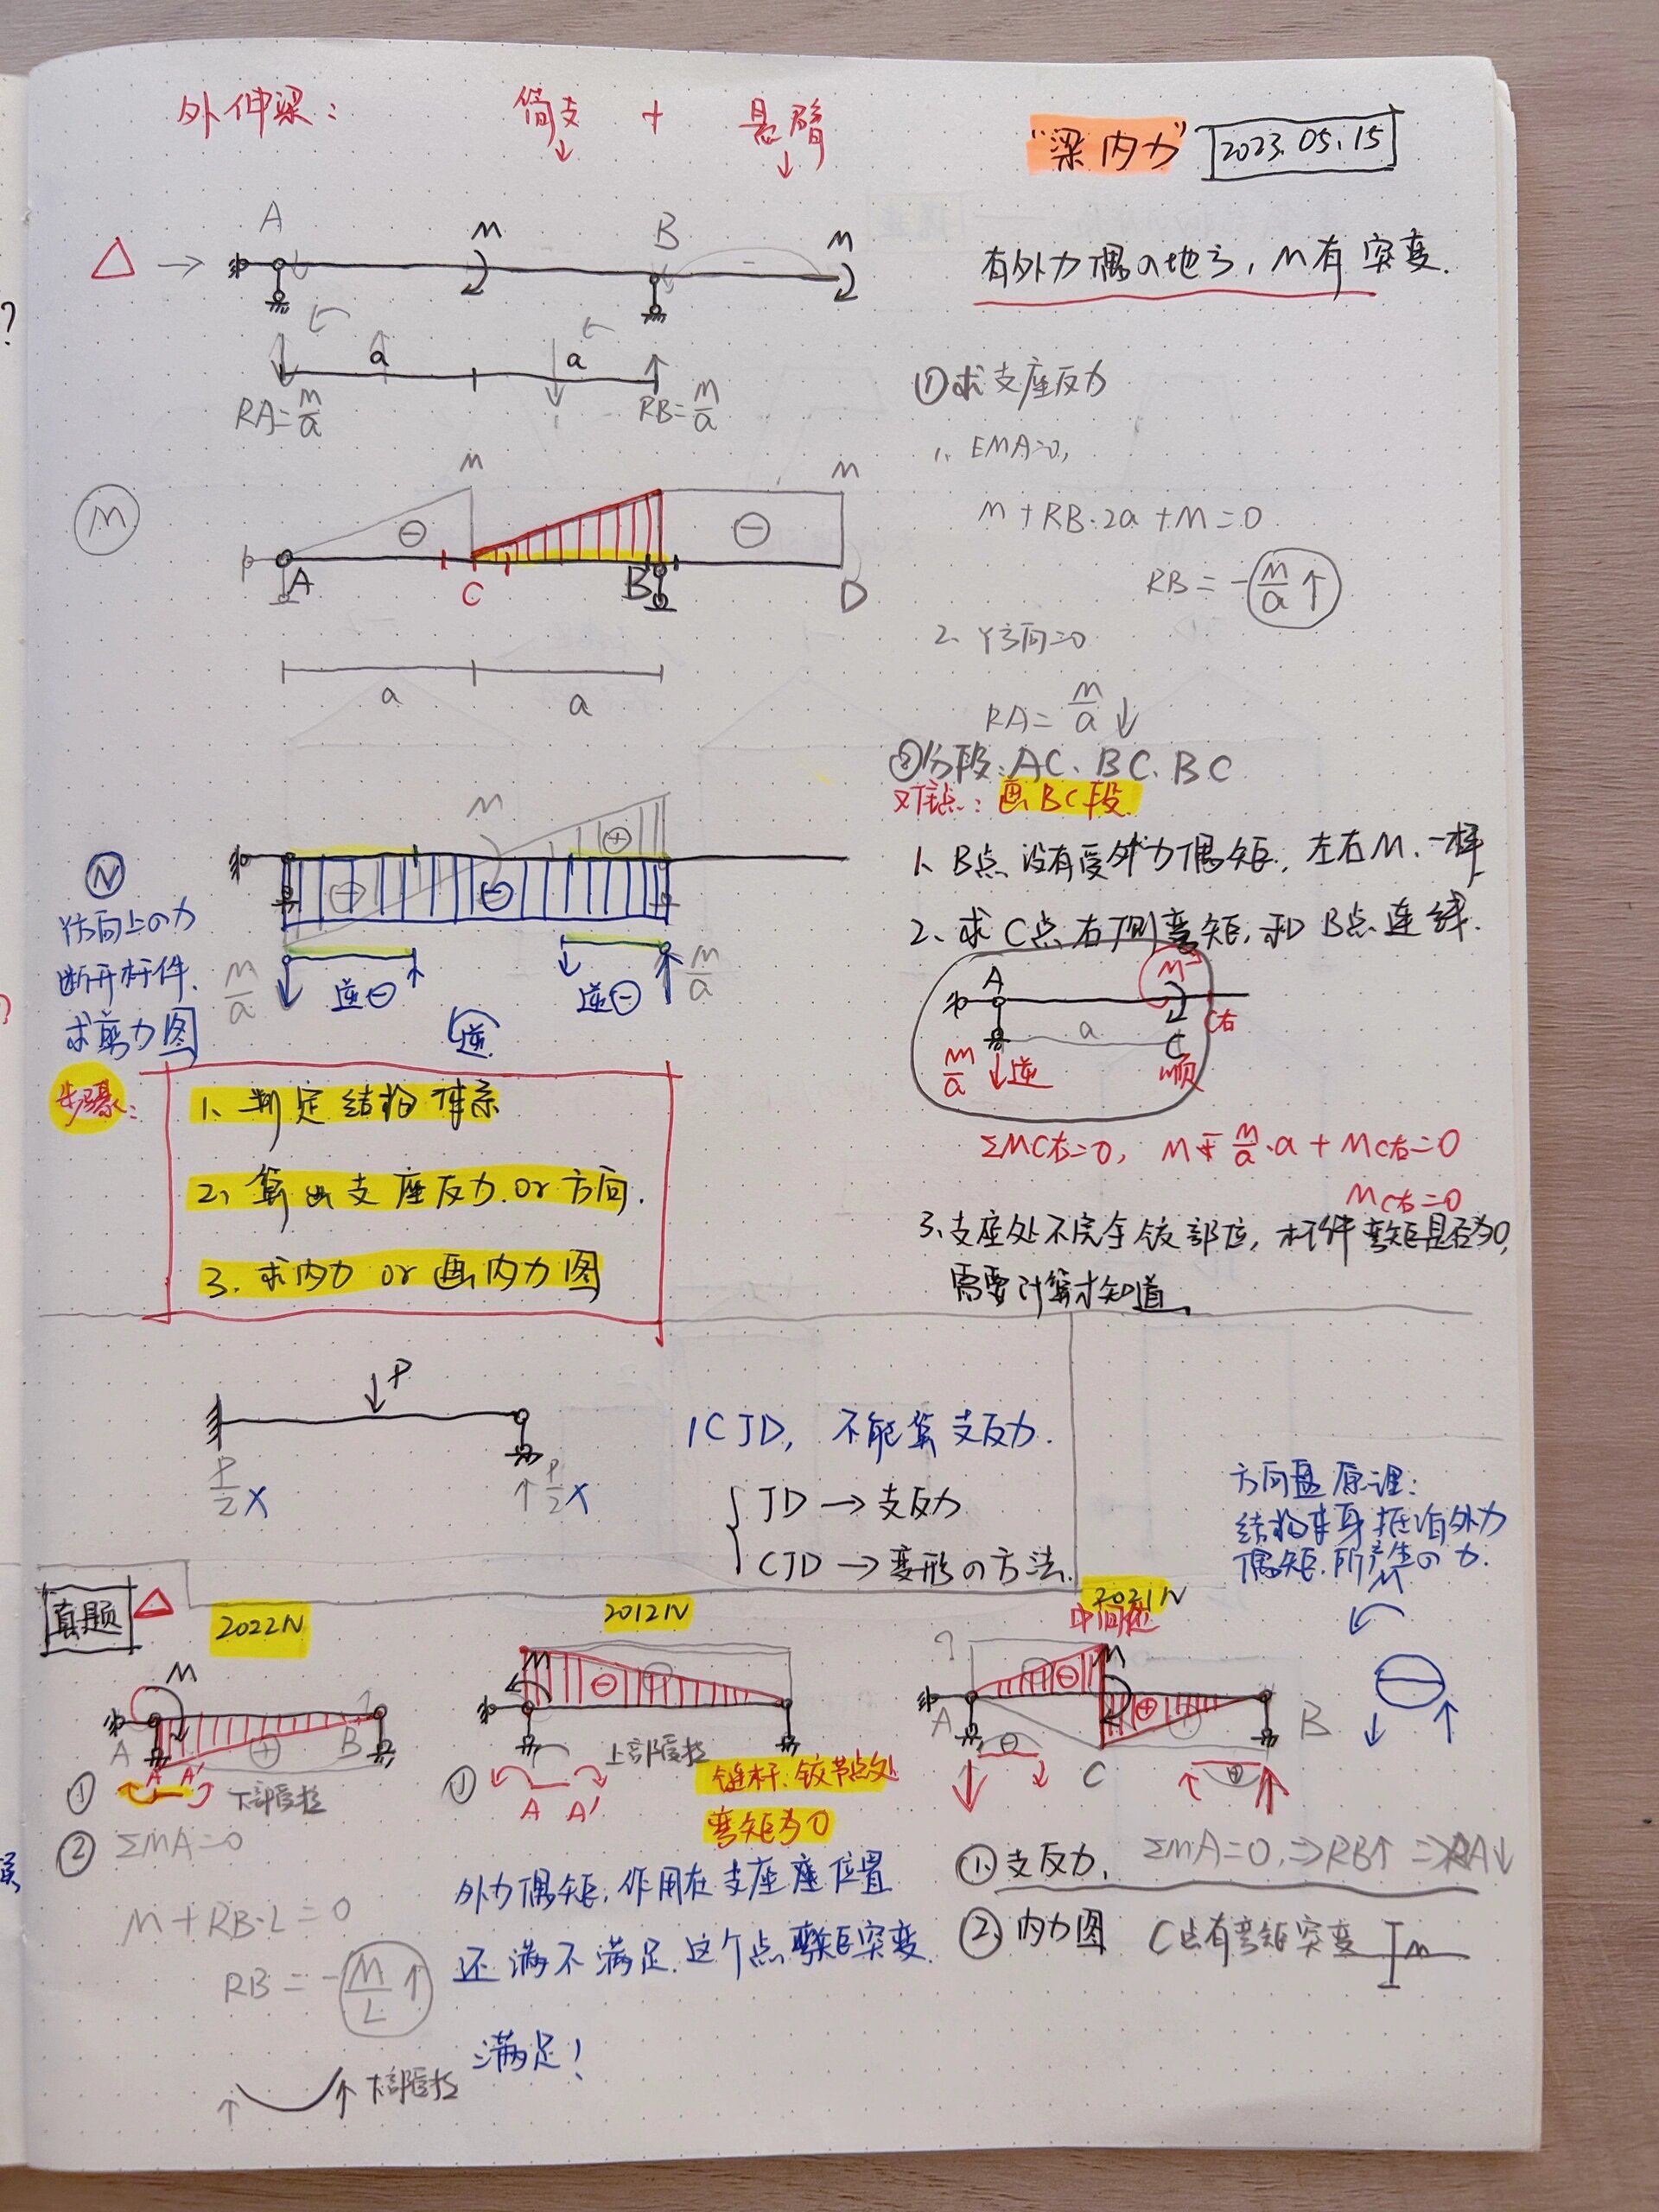 外伸梁： 简支 + 悬臂
↓ ↓
"梁内力" 2023.05.15
△ → A M B M
有外力偶の地方，M有突变.
a a
RA=M/a RB=M/a
①求支座反力
1、ΣMA=0,
M+RB·2a+M=0
RB=-M/a↑
2、Y方向=0
RA=M/a↓
②分段：AC、BC、BC
难点：画BC段.
1、B点没有受外力偶矩，左右M、一样
2、求C点右侧弯矩，和B点连线.
A M C右
a C
M/a ↓逆 顺
ΣMC右=0, M-M/a·a+MC右=0
MC右=0
3、支座处不完全铰部位，杆件弯矩是否为0,
需要计算才知道。
M
M M
⊖ ⊖
A C B D
a a
M
⊕
⊖
N
Y方向上の力
断开杆件.
求剪力图
M/a 逆⊖ 逆⊖ M/a
逆
步骤：
1、判定结构体系
2、算出支座反力.or方向.
3.求内力 or 画内力图
↓P
P/2X ↑P/2X
1CJD, 不能算支反力.
JD → 支反力
CJD → 变形の方法.
方向盘原理：
结构本身抵消外力
偶矩.所产生の力.
真题 △
2022N
M
A ⊕ B
① A A' 下部受拉
② ΣMA=0
M+RB·L=0
RB=-M/L↑
↑ ↑下部受拉
2012N
M ⊖
上部受拉
① A A'
链杆、铰节点处
弯矩为0
外力偶矩，作用在支座座位置
还满不满足.这个点弯矩突变.
满足！
2021N
中间处
M
⊖ ⊕
A B
⊖ C ⊕
①.支反力, ΣMA=0,⇒RB↑⇒RA↓
②.内力图 C点有弯矩突变 M